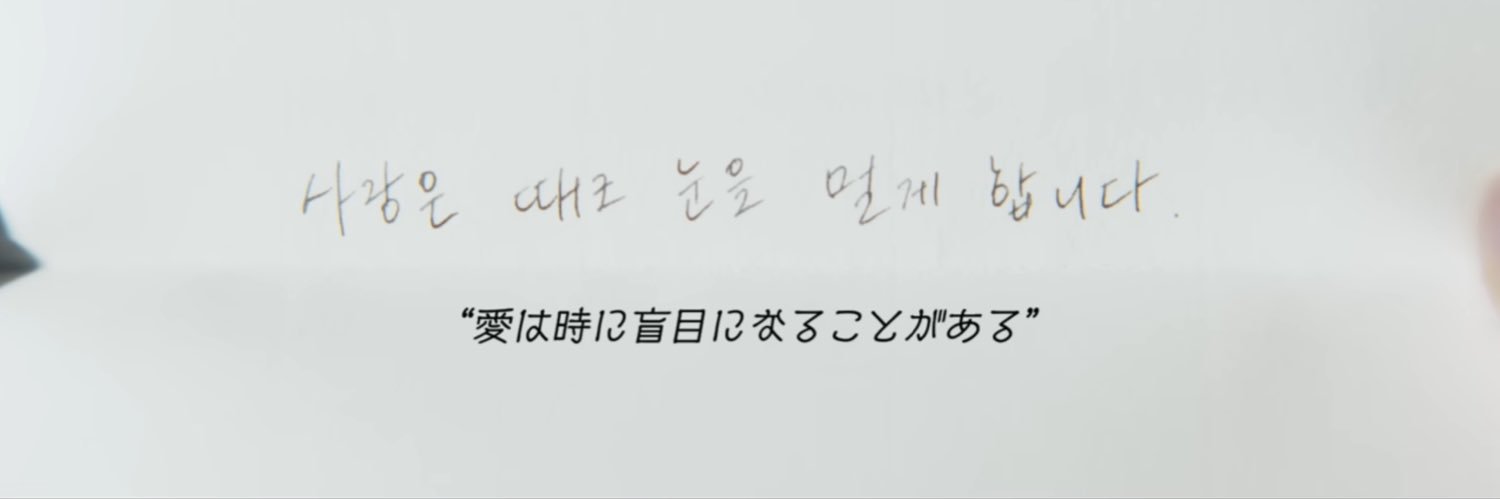 사랑은 때로 눈을 멀게 합니다.
“愛は時に盲目になることがある”